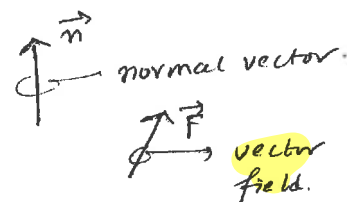 n
normal vector.
F
vector
field.